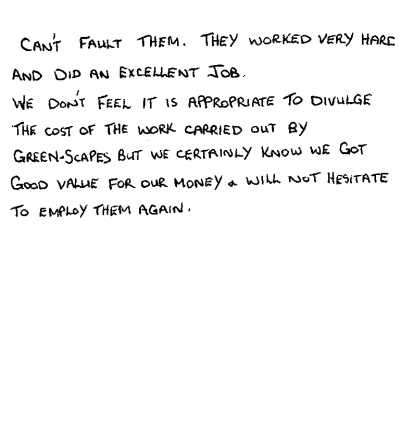 CAN'T FAULT THEM. THEY WORKED VERY HARD
AND DID AN EXCELLENT JOB.
WE DON'T FEEL IT IS APPROPRIATE TO DIVULGE
THE COST OF THE WORK CARRIED OUT BY
GREEN-SCAPES BUT WE CERTAINLY KNOW WE GOT
GOOD VALUE FOR OUR MONEY & WILL NOT HESITATE
TO EMPLOY THEM AGAIN.